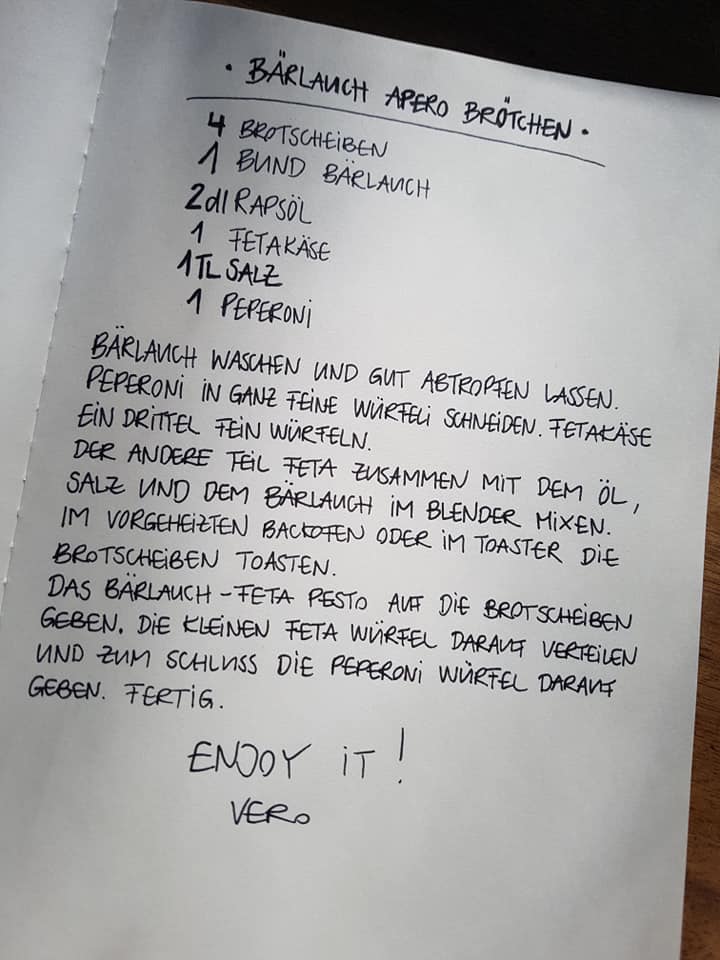 • BÄRLAUCH APERO BRÖTCHEN •
4 BROTSCHEIBEN
1 BUND BÄRLAUCH
2dl RAPSÖL
1 FETAKÄSE
1TL SALZ
1 PEPERONI
BÄRLAUCH WASCHEN UND GUT ABTROPFEN LASSEN.
PEPERONI IN GANZ FEINE WÜRFELI SCHNEIDEN. FETAKÄSE
EIN DRITTEL FEIN WÜRFELN.
DER ANDERE TEIL FETA ZUSAMMEN MIT DEM ÖL,
SALZ UND DEM BÄRLAUCH IM BLENDER MIXEN.
IM VORGEHEIZTEN BACKOFEN ODER IM TOASTER DIE
BROTSCHEIBEN TOASTEN.
DAS BÄRLAUCH-FETA PESTO AUF DIE BROTSCHEIBEN
GEBEN. DIE KLEINEN FETA WÜRFEL DARAUF VERTEILEN
UND ZUM SCHLUSS DIE PEPERONI WÜRFEL DARAUF
GEBEN. FERTIG.
ENJOY IT!
VERO